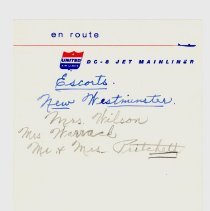 en route
UNITED
DC-8 JET MAINLINER
Escorts.
New Westminster.
Mrs. Wilson
Mrs Warrack
Mr & Mrs. Pritchett